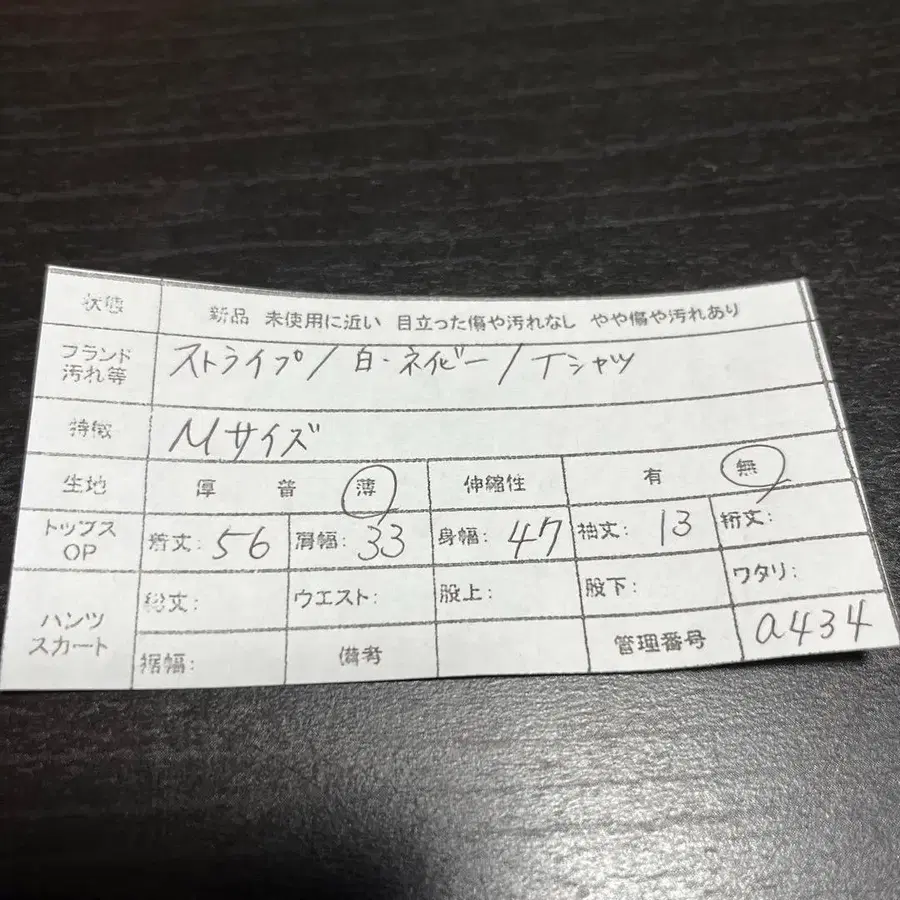 状態 新品 未使用に近い 目立った傷や汚れなし やや傷や汚れあり
ブランド 汚れ等 ストライプ/白・ネイビー/Tシャツ
特徴 Mサイズ
生地 厚 普 薄 伸縮性 有 無
トップス OP 着丈: 56 肩幅: 33 身幅: 47 袖丈: 13 裄丈:
パンツ スカート 総丈: ウエスト: 股上: 股下: ワタリ:
裾幅: 備考 管理番号 a434